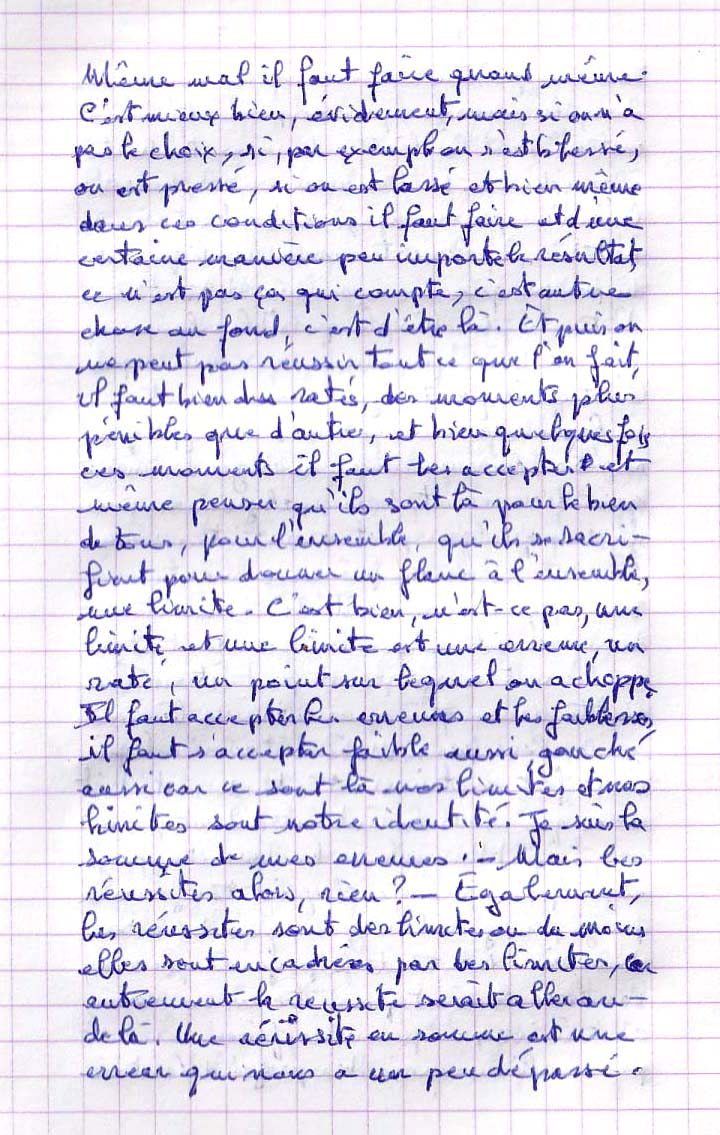 Même mal il faut faire quand même.
C'est mieux bien, évidement, mais si on n'a
pas le choix, si, par exemple on s'est blessé,
on est pressé, si on est lassé et bien même
dans ces conditions il faut faire et d'une
certaine manière peu importe le résultat,
ce n'est pas ça qui compte, c'est autre
chose au fond, c'est d'être là. Et puis on
ne peut pas réussir tout ce que l'on fait,
il faut bien des ratés, des moments plus
pénibles que d'autre, et bien quelques fois
ces moments il faut les accepter et
même penser qu'ils sont là pour le bien
de tous, pour l'ensemble, qu'ils se sacri-
fient pour donner un flanc à l'ensemble,
une limite. C'est bien, n'est-ce pas, une
limite et une limite est une erreur, un
raté, un point sur lequel on achoppe.
Il faut accepter les erreurs et les faiblesses,
il faut s'accepter faible aussi, gauche
aussi car ce sont là nos limites et nos
limites sont notre identité. Je suis la
somme de mes erreurs. - Mais les
réussites alors, rien ? - Egalement,
les réussites sont des limites ou du moins
elles sont encadrées par les limites, car
autrement la réussite serait aller au-
delà. Une réussite en somme est une
erreur qui nous a un peu dépassé.